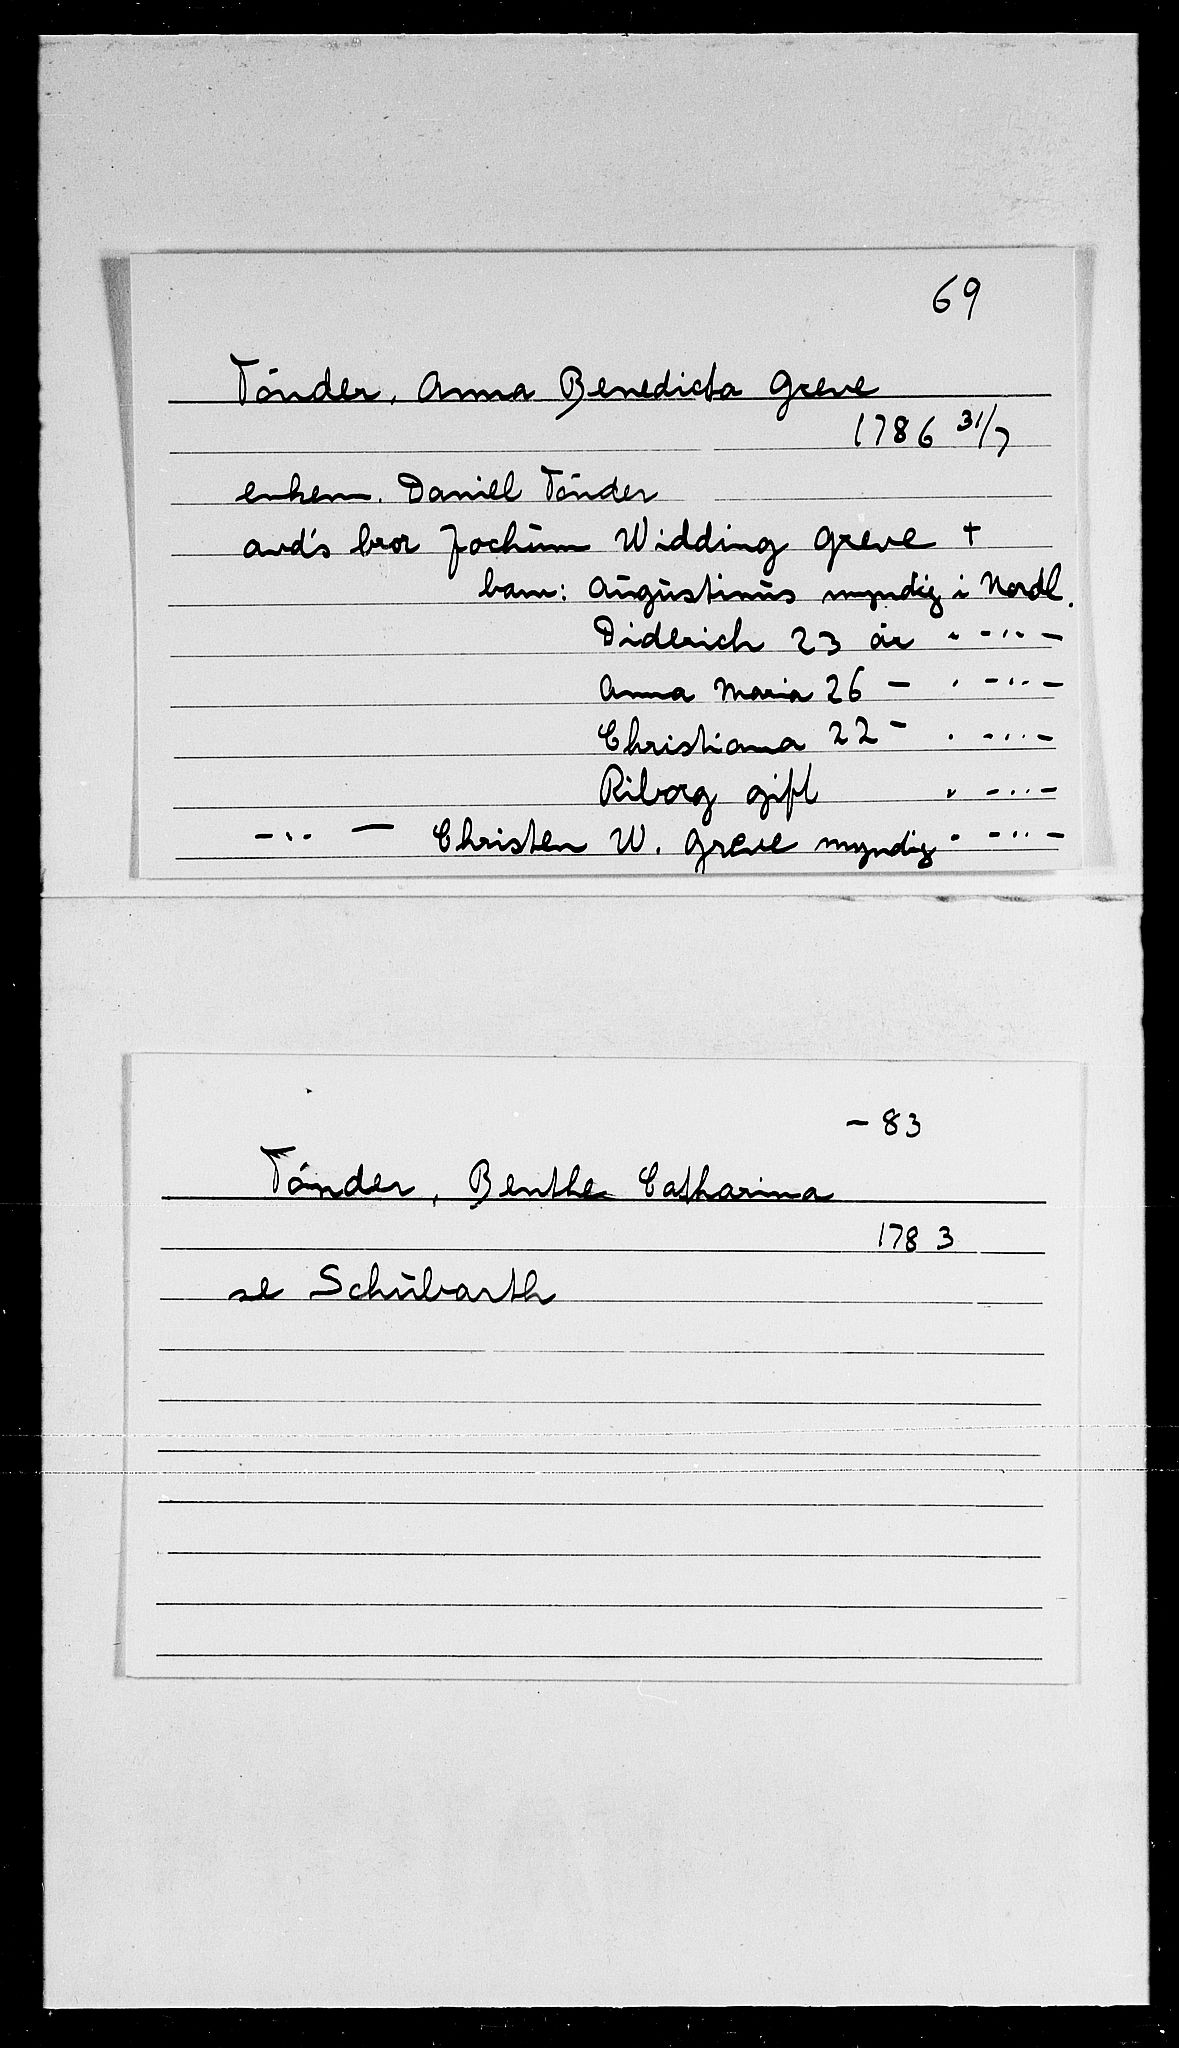 69
Tønder, Anna Benedicta Greve
1786 31/7
enkem. Daniel Tønder
avd's bror Jochum Widding Greve +
barn: Augustinus myndig i Nordl.
Diderich 23 år " - " -
Anna Maria 26 - " - " -
Christiana 22 - " - " -
Riborg gift " - " -
- " - Christen W. Greve myndig " - " -
- 83
Tønder, Benthe Catharina
1783
se Schubarth